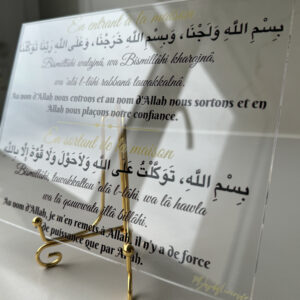 En entrant à la maison
بِسْمِ اللَّهِ وَلَجْنَا، وَبِسْمِ اللَّهِ خَرَجْنَا، وَعَلَى اللَّهِ رَبِّنَا تَوَكَّلْنَا
Bismillâhi walajnâ, wa Bismillâhi kharajnâ,
wa 'alâ l-lâhi rabbanâ tawakkalnâ.
Au nom d'Allah nous entrons et au nom d'Allah nous sortons et en
Allah nous plaçons notre confiance.
En sortant de la maison
بِسْمِ اللَّهِ، تَوَكَّلْتُ عَلَى اللَّهِ وَلَا حَوْلَ وَلَا قُوَّةَ إِلَّا بِاللَّهِ
Bismillâhi, tawakkaltou 'alâ l-lâhi, wa lâ hawla
wa lâ qouwwata illâ billâhi.
Au nom d'Allah, je m'en remets à Allah, il n'y a de force
de puissance que par Allah.